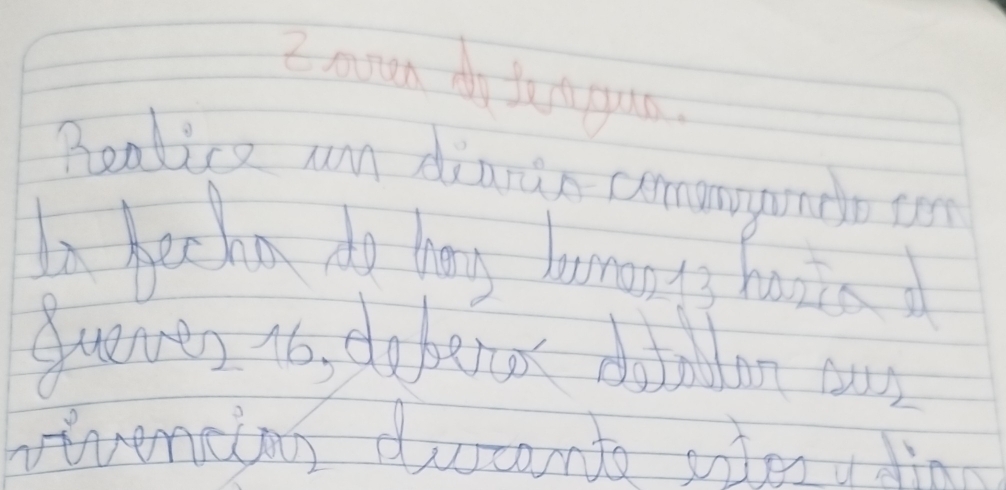 Tarea de lengua.
Realice un diario comenzando con
la fecha de hoy lunes 13 hasta el
Jueves 16, debera detallar sus
vivencias durante estos dias